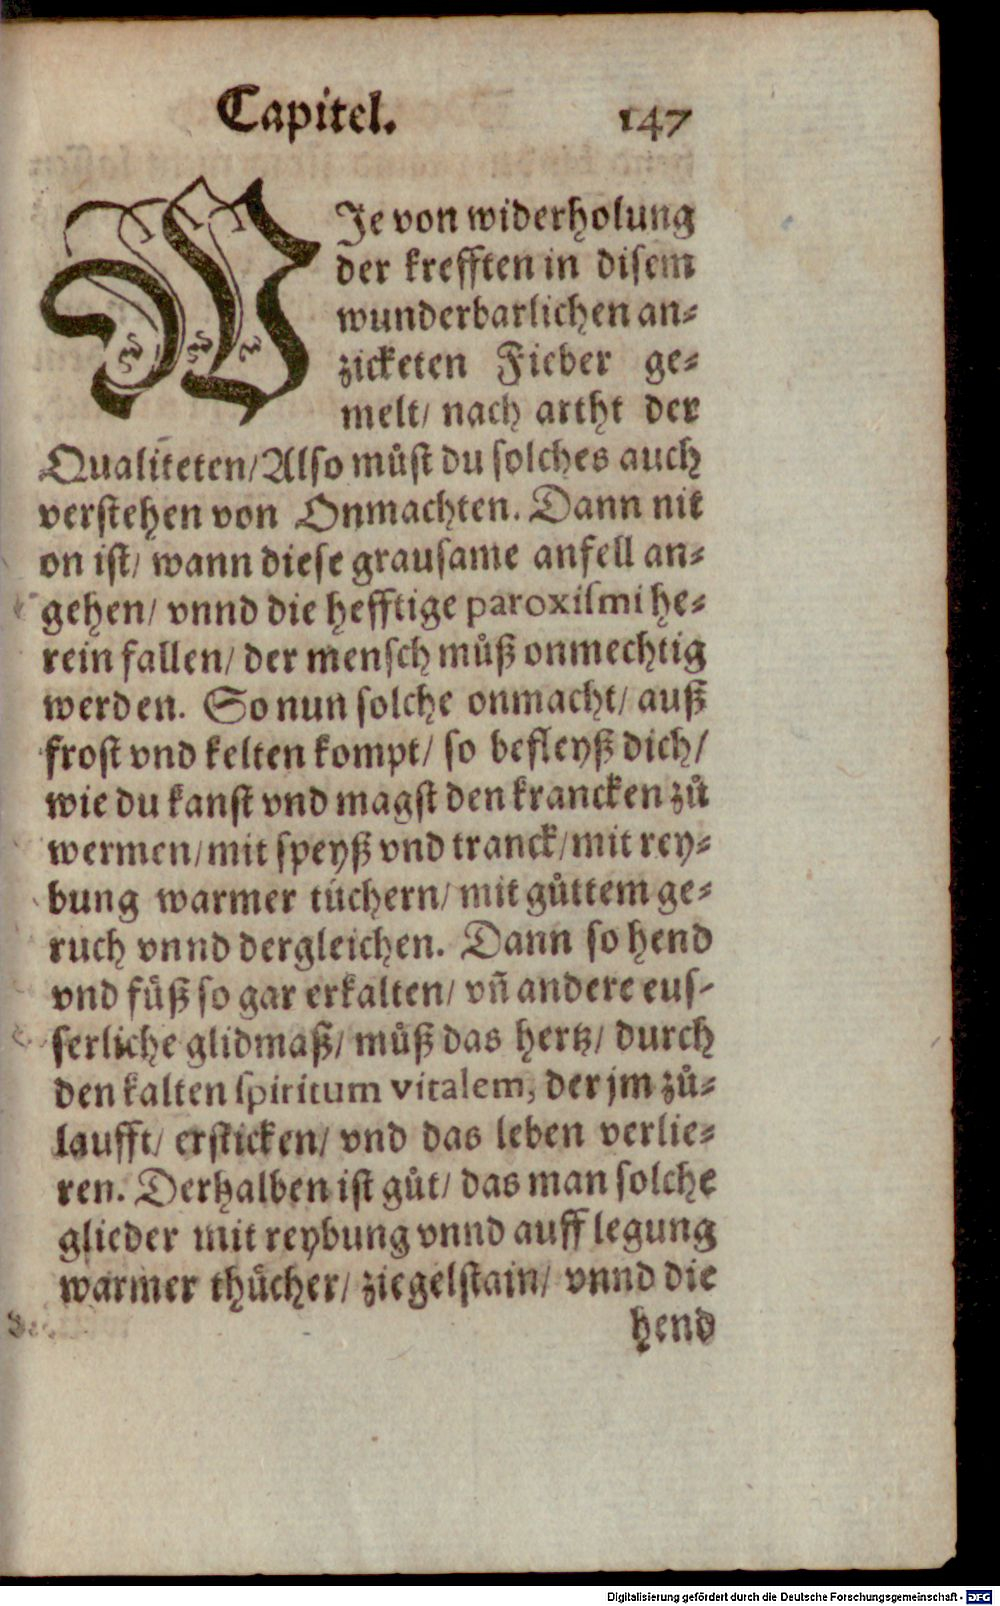 Capitel. 147
WJe von widerholung
der krefften in disem
wunderbarlichen an-
zicketen Fieber ge-
melt/ nach artht der
Qualiteten/ Also můst du solches auch
verstehen von Onmachten. Dann nit
on ist/ wann diese grausame anfell an-
gehen/ vnnd die hefftige paroxismi he-
rein fallen/ der mensch můß onmechtig
werden. So nun solche onmacht/ auß
frost vnd kelten kompt/ so befleyß dich/
wie du kanst vnd magst den krancken zů
wermen/ mit speyß vnd tranck/ mit rey-
bung warmer tüchern/ mit gůttem ge-
ruch vnnd dergleichen. Dann so hend
vnd füß so gar erkalten/ vñ andere eus-
serliche glidmaß/ můß das hertz/ durch
den kalten spiritum vitalem, der jm zů-
laufft/ ersticken/ vnd das leben verlie-
ren. Derhalben ist gůt/ das man solche
glieder mit reybung vnnd auff legung
warmer thücher/ ziegelstain/ vnnd die
hend
Digitalisierung gefördert durch die Deutsche Forschungsgemeinschaft - DFG